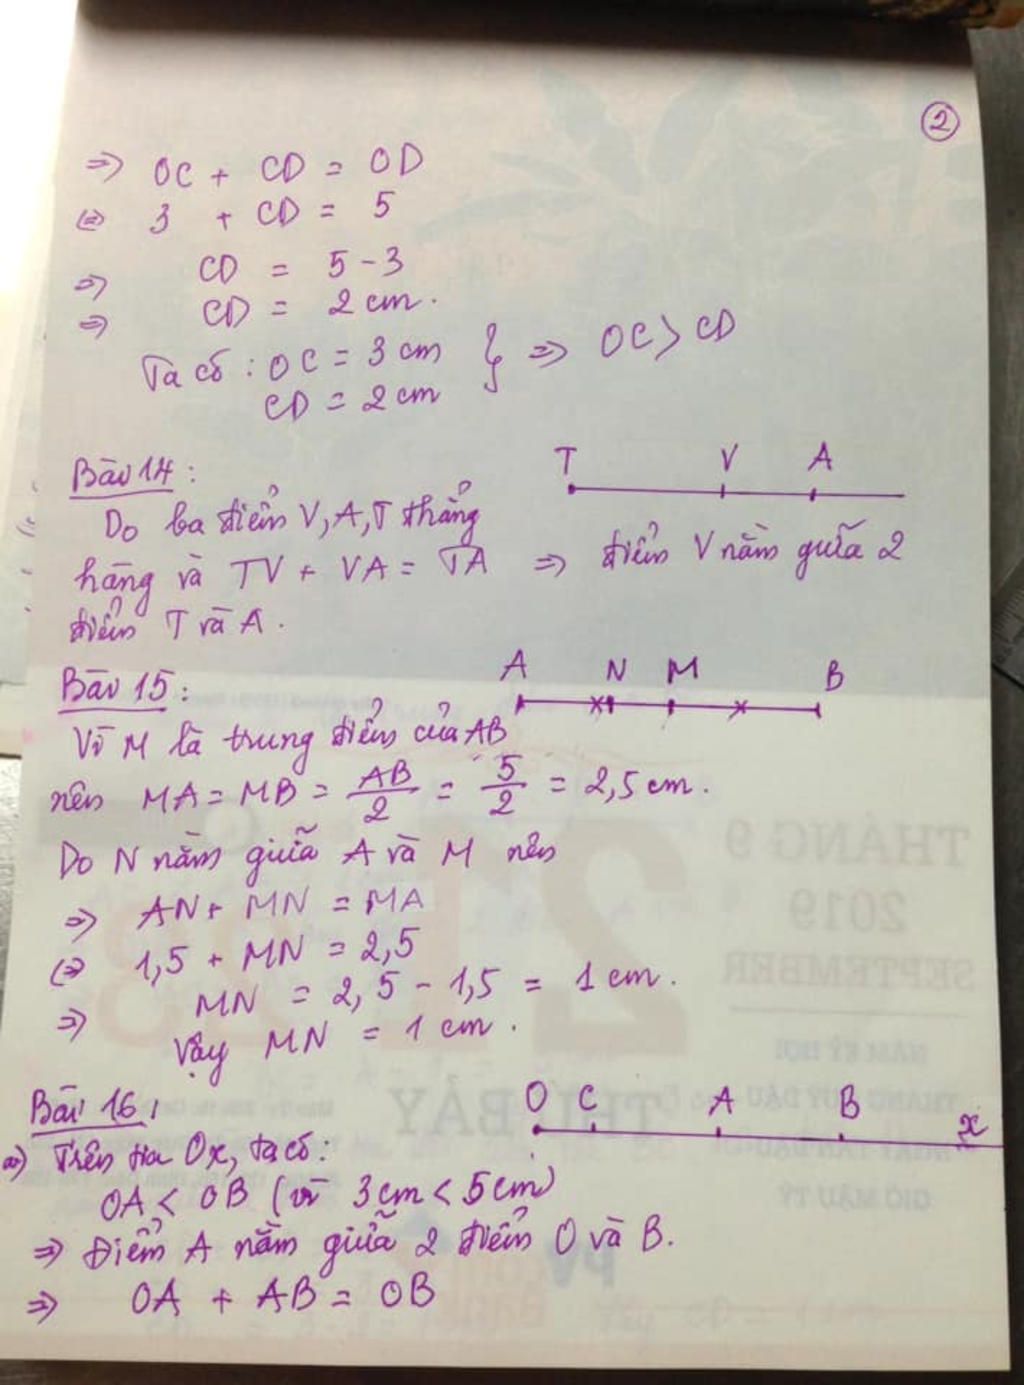 2
=> OC + CD = OD
<=> 3 + CD = 5
=> CD = 5 - 3
=> CD = 2 cm.
Ta có : OC = 3 cm } => OC > CD
CD = 2 cm
T V A
Bài 14 :
Do ba điểm V, A, T thẳng
hàng và TV + VA = TA => điểm V nằm giữa 2
điểm T và A.
A N M B
Bài 15 :
Vì M là trung điểm của AB
nên MA = MB = AB/2 = 5/2 = 2,5 cm.
Do N nằm giữa A và M nên
=> AN + MN = MA
<=> 1,5 + MN = 2,5
=> MN = 2,5 - 1,5 = 1 cm.
Vậy MN = 1 cm.
O C A B x
Bài 16 :
a) Trên tia Ox, ta có :
OA < OB (vì 3cm < 5cm)
=> Điểm A nằm giữa 2 điểm O và B.
=> OA + AB = OB
THÁNG 9
2019
SEPTEMBER
THỨ BẢY